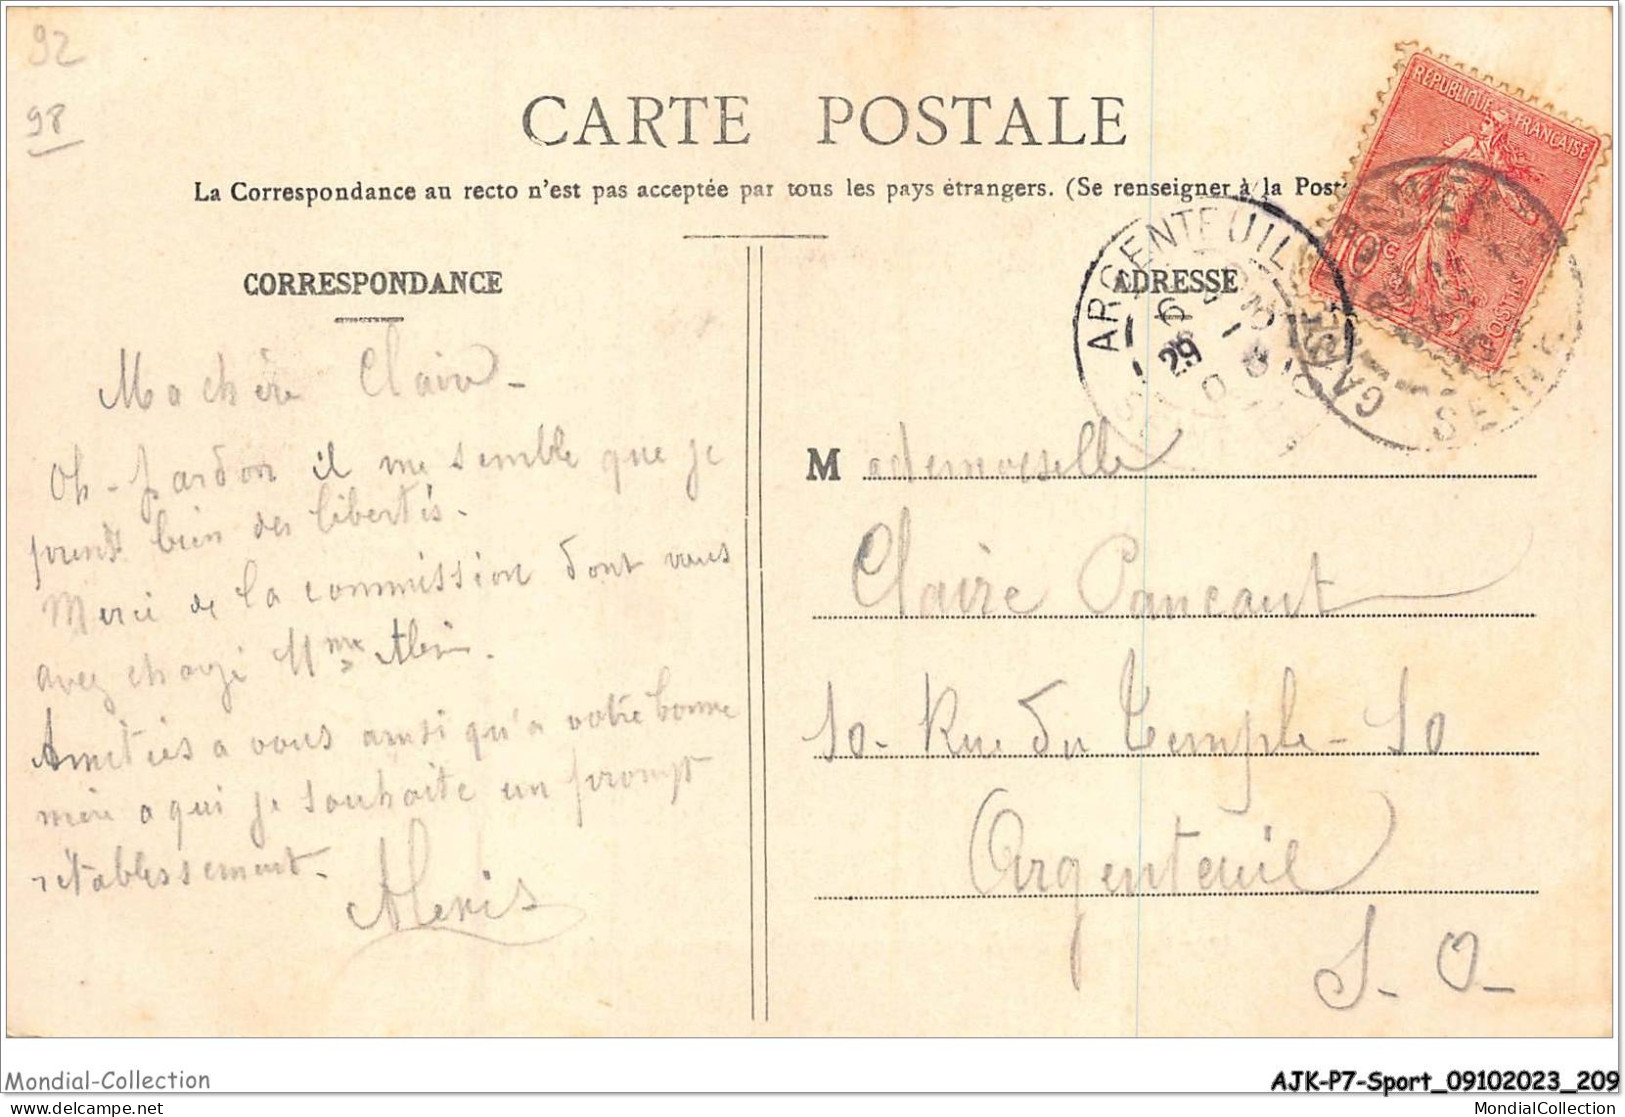 92
98
CARTE POSTALE
La Correspondance au recto n'est pas acceptée par tous les pays étrangers. (Se renseigner à la Post
CORRESPONDANCE
ADRESSE
RÉPUBLIQUE FRANÇAISE
10c
POSTES
ARGENTEUIL
29
GARE
SEINE
Ma chère Claire -
Oh - pardon il me semble que je
prends bien des libertés -
Merci de la commission dont vous
avez chargé Mme Alexis.
Amitiés a vous ainsi qu'a votre bonne
mère a qui je souhaite un prompt
rétablissement -
Alexis
Mademoiselle
Claire Pancaut
10 - Rue du Temple - 10
Argenteuil
S - O -
Mondial-Collection
AJK-P7-Sport_09102023_209
delcampe.net
MondialCollection